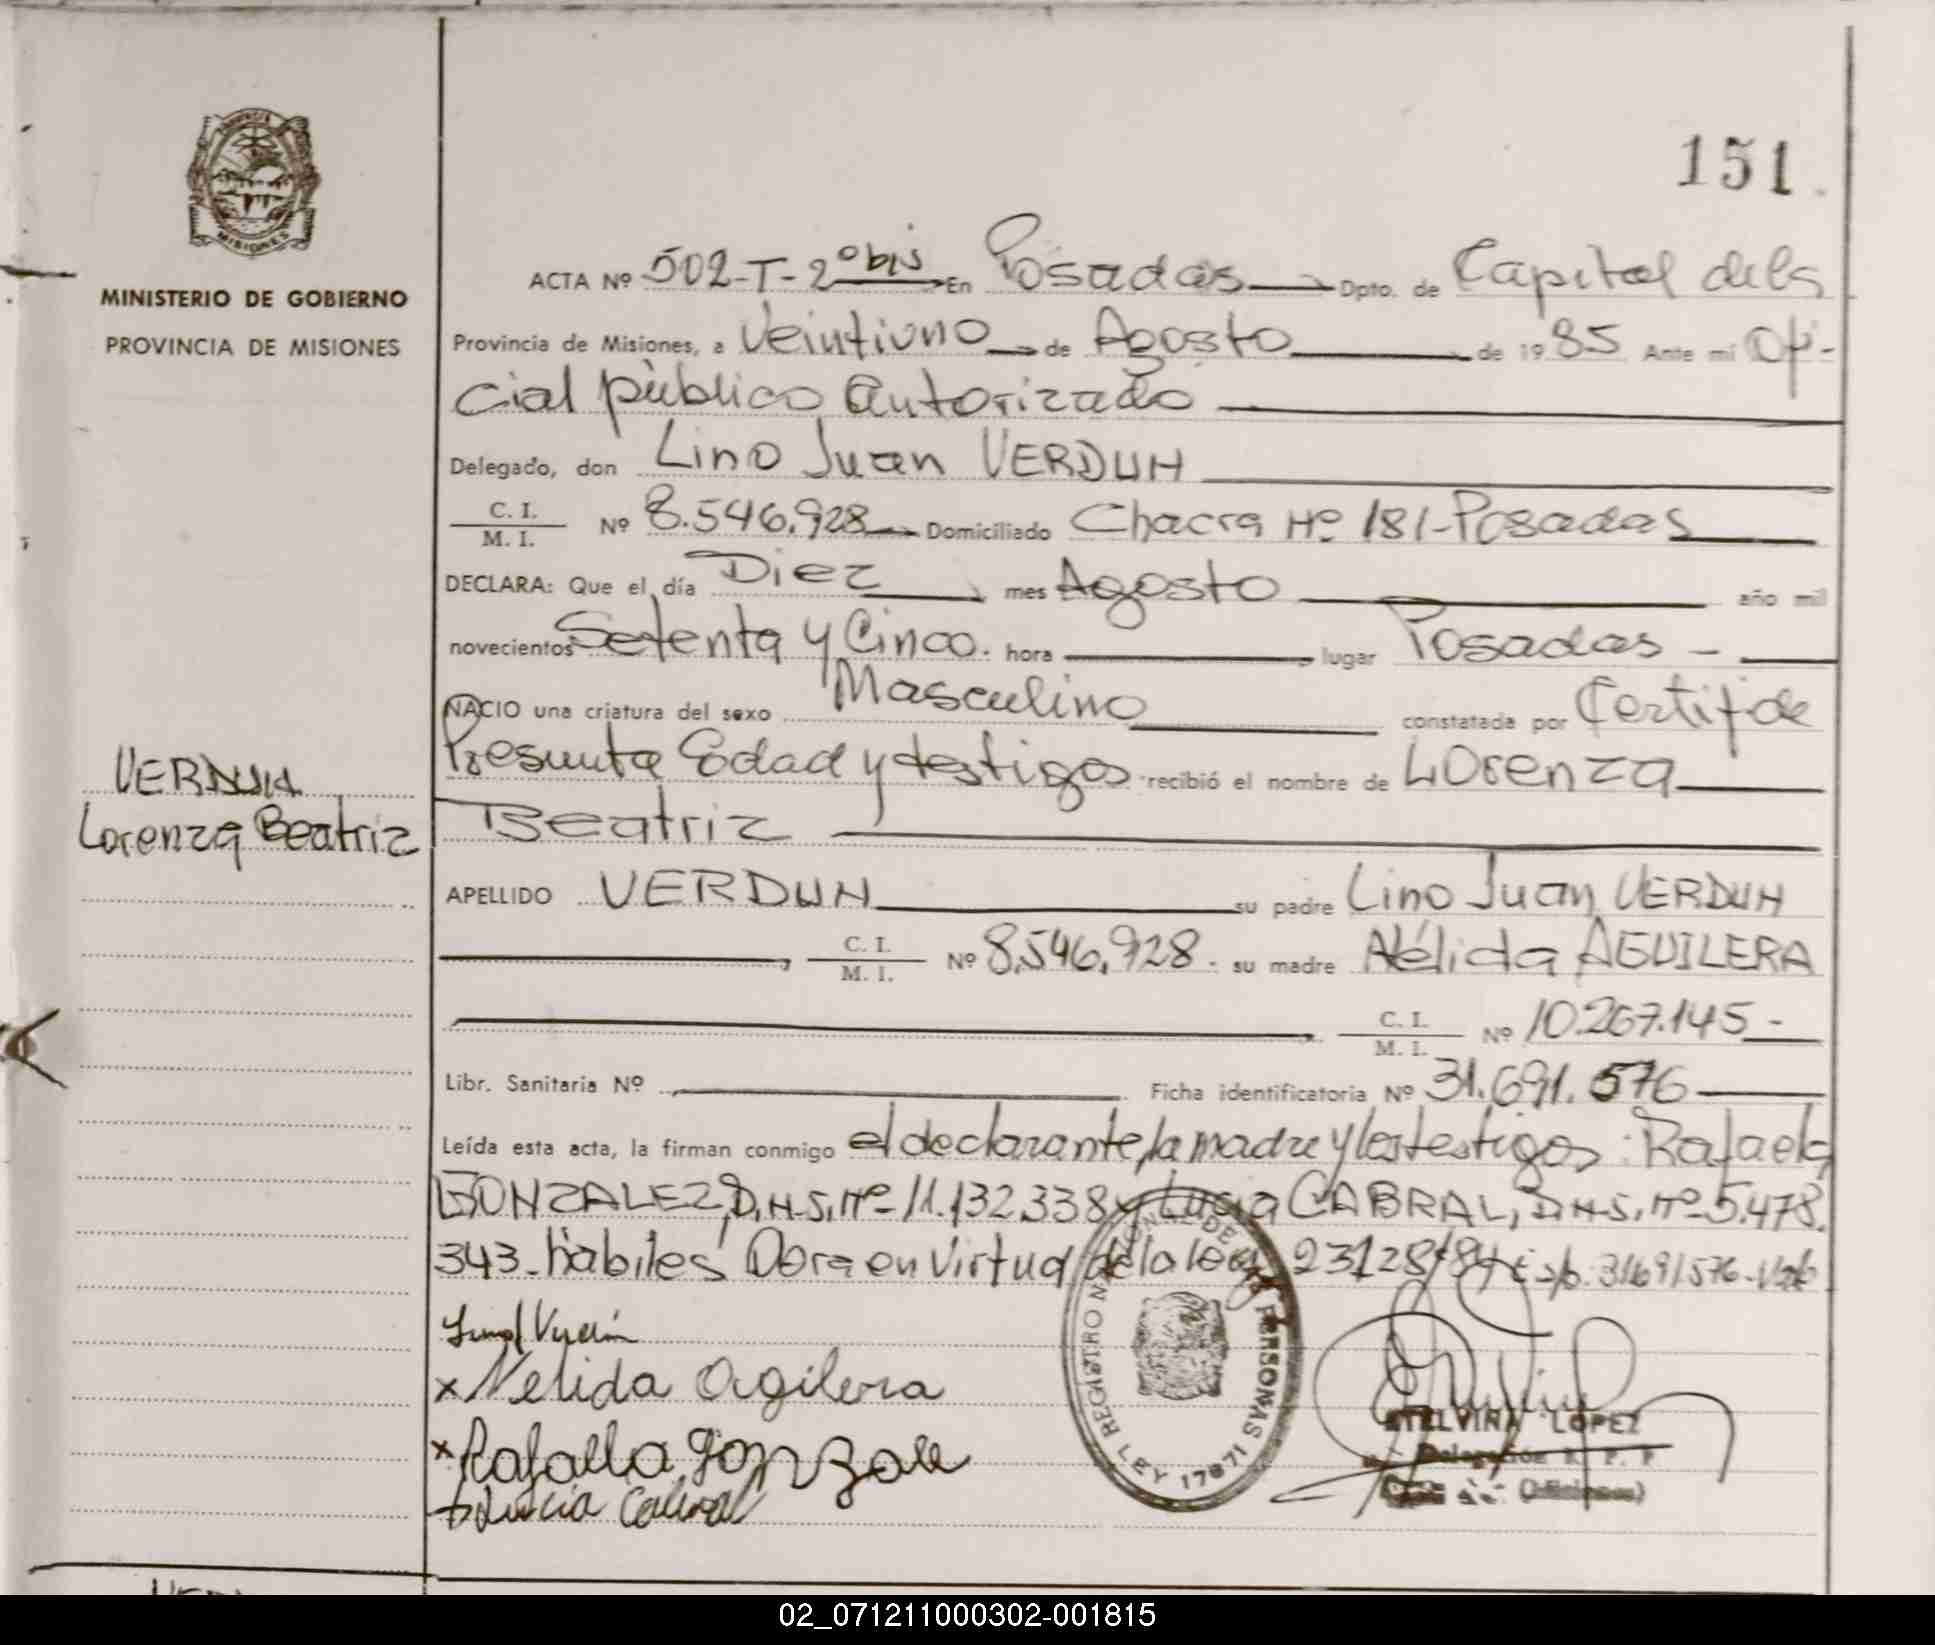 151
PROVINCIA
MISIONES
MINISTERIO DE GOBIERNO
PROVINCIA DE MISIONES
ACTA Nº 502-T-2º bis En Posadas Dpto. de Capital de la
Provincia de Misiones, a Veintiuno de Agosto de 1985 Ante mi Ofi-
cial público autorizado
Delegado, don Lino Juan VERDUN
C. I.
M. I. Nº 8.546.928 Domiciliado Chacra Nº 181-Posadas
DECLARA: Que el día Diez mes Agosto año mil
novecientos Setenta y Cinco. hora lugar Posadas -
NACIO una criatura del sexo Masculino constatada por Certif de
Presunta Edad y testigos recibió el nombre de Lorenza
Beatriz
VERDUN
Lorenza Beatriz
APELLIDO VERDUN su padre Lino Juan VERDUN
C. I.
M. I. Nº 8.546.928. su madre Nélida AGUILERA
C. I.
M. I. Nº 10.267.145-
Libr. Sanitaria Nº Ficha identificatoria Nº 31.691.576
Leída esta acta, la firman conmigo el declarante, la madre y los testigos: Rafaela
GONZALEZ, D.N.S. Nº 11.132.338 y Lucia CABRAL, D.N.S. Nº 5.478.
343-hábiles Obra en virtud de la ley 23128/84 s/b. 31691576-Vale
Verdún
x Nelida Agilera
x Rafaela Gonzale
x Lucia Cabral
REGISTRO NACIONAL DE LAS PERSONAS
LEY 17671
ETELVINA LOPEZ
Delegación R. P. P.
(Misiones)
02_071211000302-001815